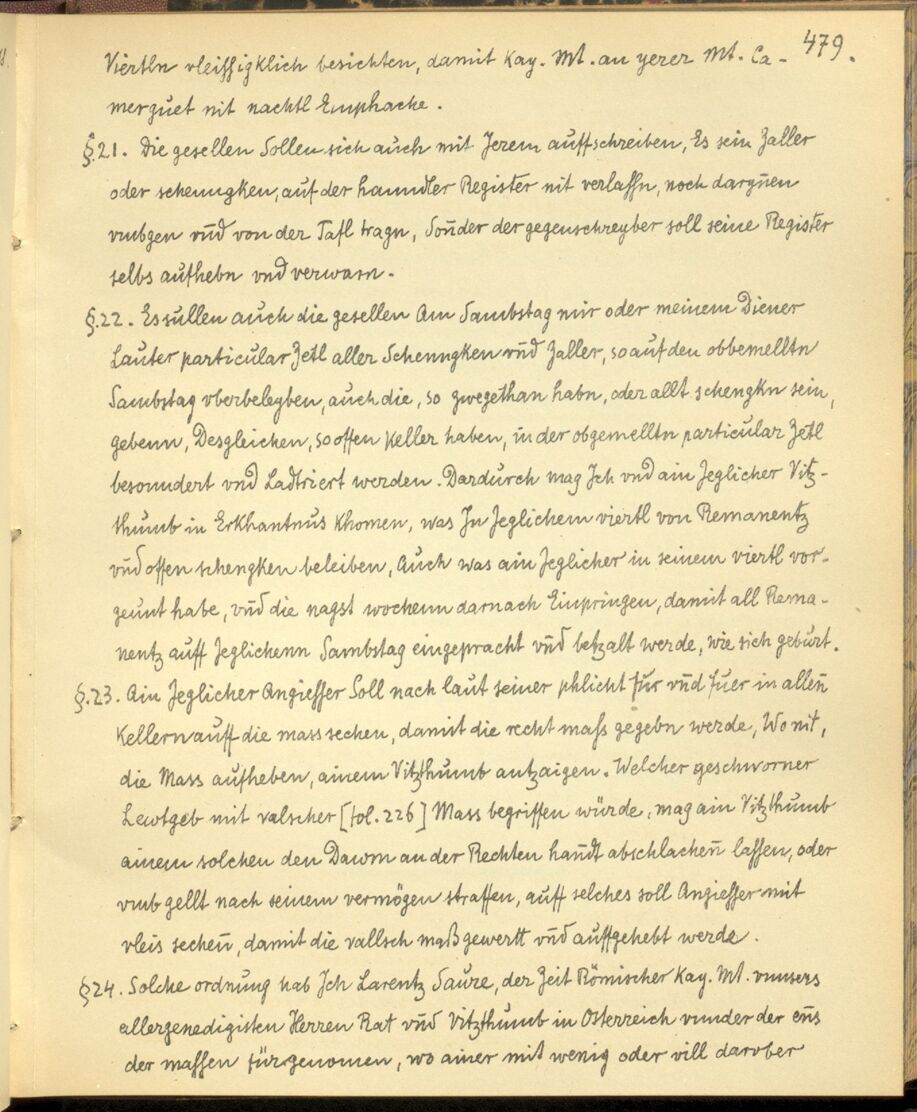 479.
Viertln vleissigklich besichten, damit Kay. Mt. an yerer Mt. Ca-
merguet nit nachtl Emphache.
§.21. Die gesellen Sollen sich auch mit Jerem auffschreiben, Es sein Zaller
oder schenngken, auf der hanndler Register nit verlassn, noch darynen
vmbgen vnd von der Tafl tragn, Sonder der gegenschreyber soll seine Register
selbs aufhebn vnd verwarn.
§.22. Es sullen auch die gesellen Am Sambstag mir oder meinem Diener
Lauter particular Zetl aller Schenngken vnd Zaller, so auf den obbemelltn
Sambstag vberbeleyben, auch die, so zwegethan habn, oder allt schengkn sein,
gebenn, Desgleichen, so offen Keller haben, in der obgemelltn particular Zetl
besonndert vnd Ladtriert werden. Dardurch mag Ich vnd ain Jeglicher Vitz-
thumb in Erkhantnus khomen, was In Jeglichem viertl von Remanentz
vnd offen schengken beleiben, Auch was ain Jeglicher in seinem viertl vor-
geunt habe, vnd die nagst wochenn darnach Einpringen, damit all Rema-
nentz auff Jeglichenn Sambstag eingepracht vnd betzalt werde, wie sich geburt.
§.23. Ain Jeglicher Angiesser Soll nach laut seiner phlicht fur vnd fuer in allen
Kellern auff die mass sechen, damit die recht mass gegebn werde, Wo nit,
die Mass aufheben, ainem Vitzthumb antzaigen. Welcher geschworner
Lewtgeb mit valscher [fol. 226] Mass begriffen würde, mag ain Vitzthumb
ainem solchen den Dawm an der Rechten handt abschlachen lassen, oder
vmb gellt nach seinem vermögen straffen, auff selches soll Angiesser mit
vleis sechen, damit die vallsch maß gewertt vnd auffgehebt werde.
§24. Solche ordnung hab Ich Larentz Saure, der Zeit Römischer Kay. Mt. vnnsers
allergenedigisten Herren Rat vnd Vitzthumb in Osterreich vnnder der enns
der massen fürgenomen, wo ainer mit wenig oder vill darober